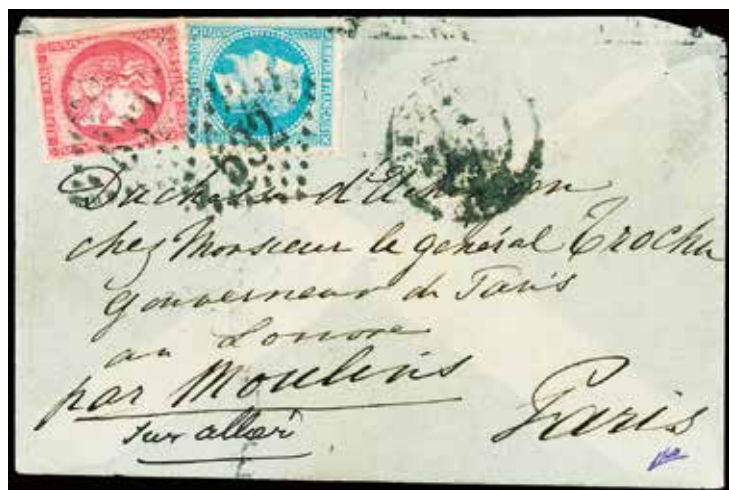 532
Duchesse d'
chez Monsieur le général Trochu
gouverneur de Paris
au Louvre
par Moulins
sur allier
Paris